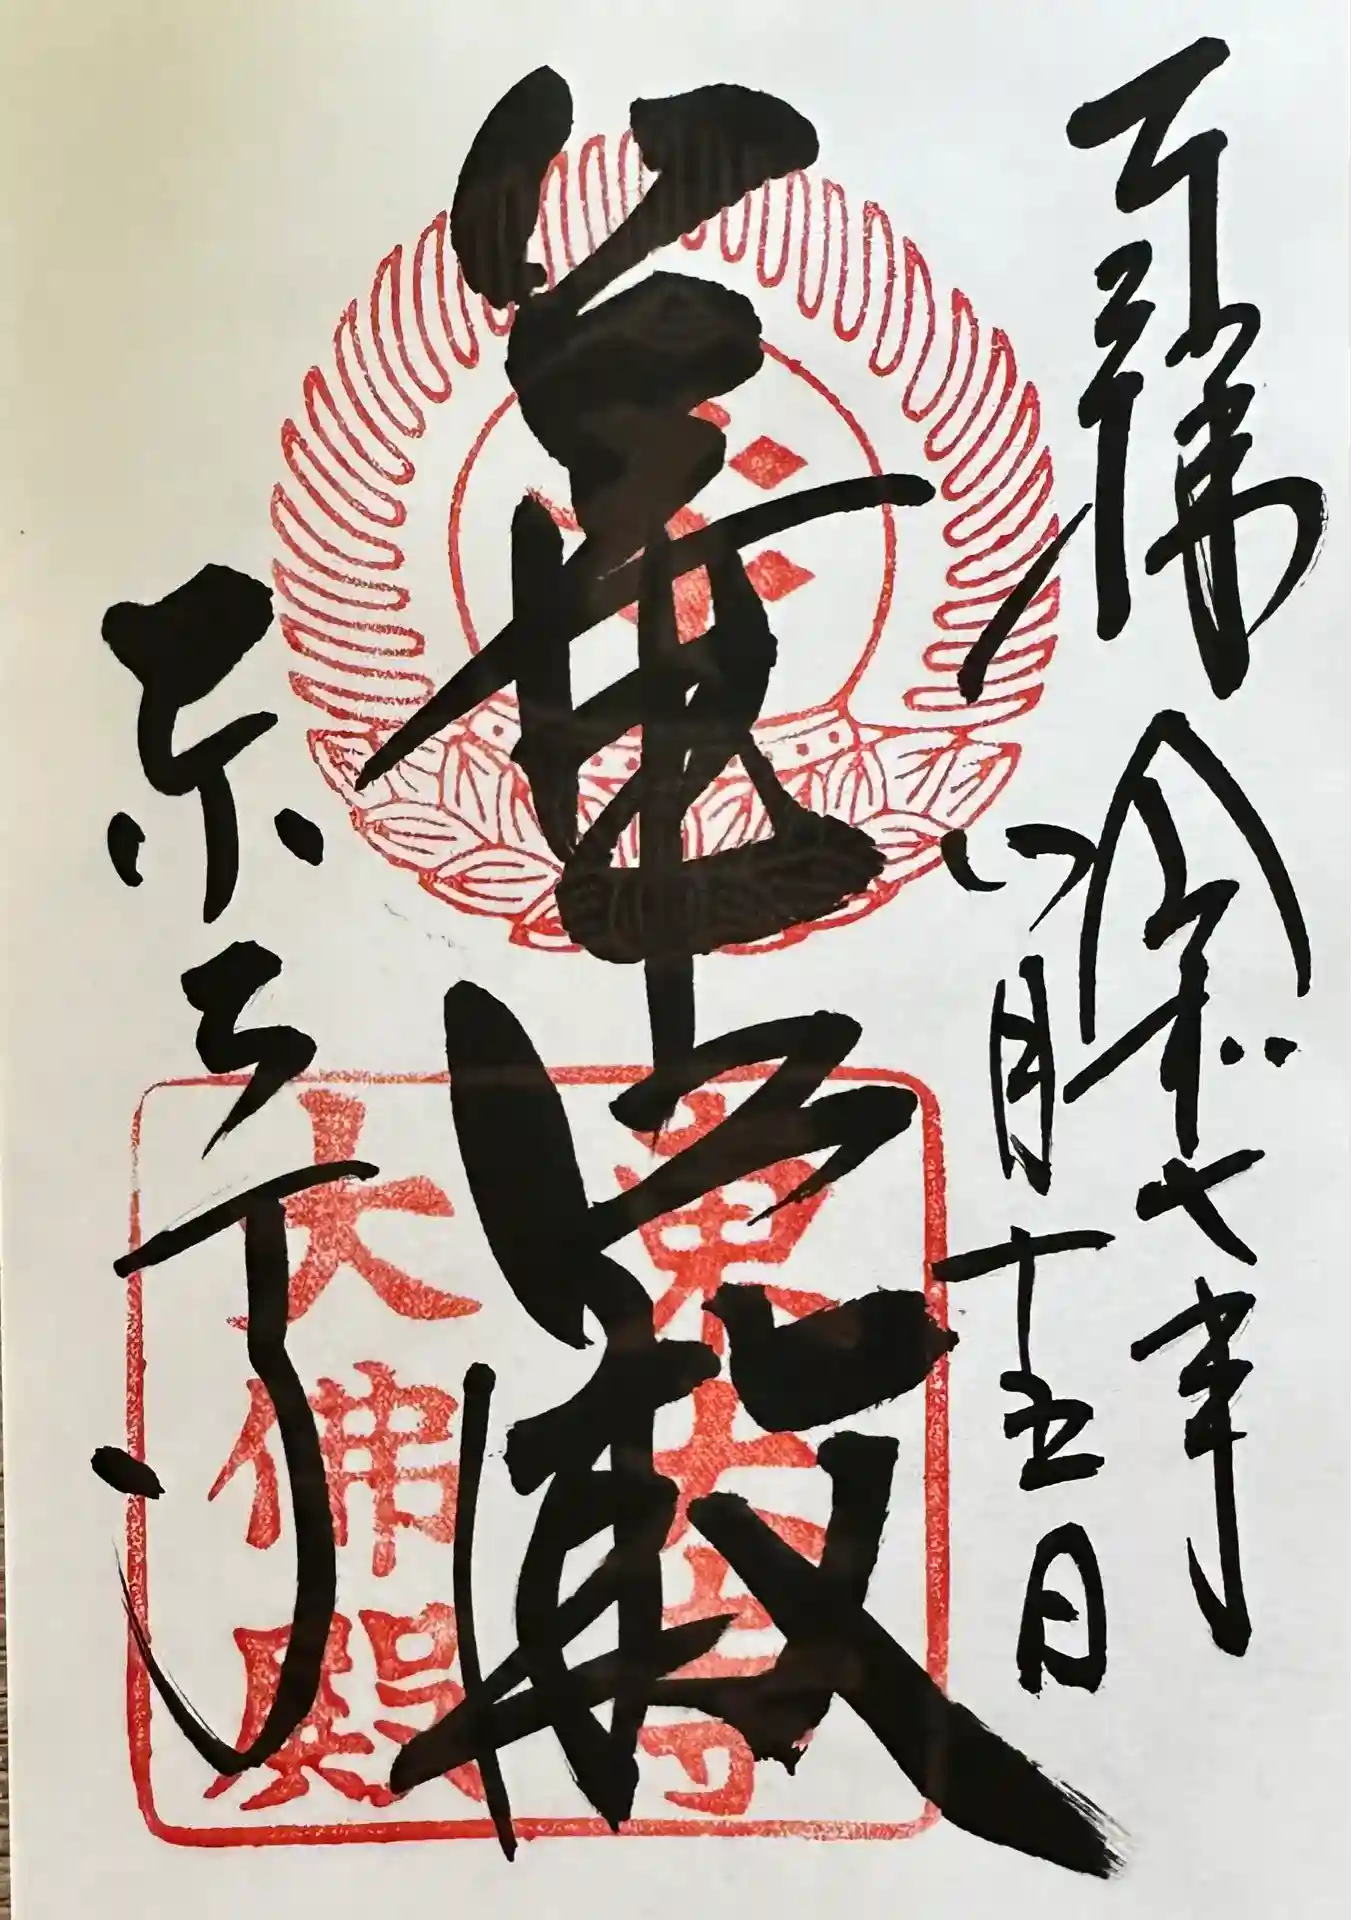 令和七年
八月十五日
華嚴
東大寺
東大寺
大佛殿